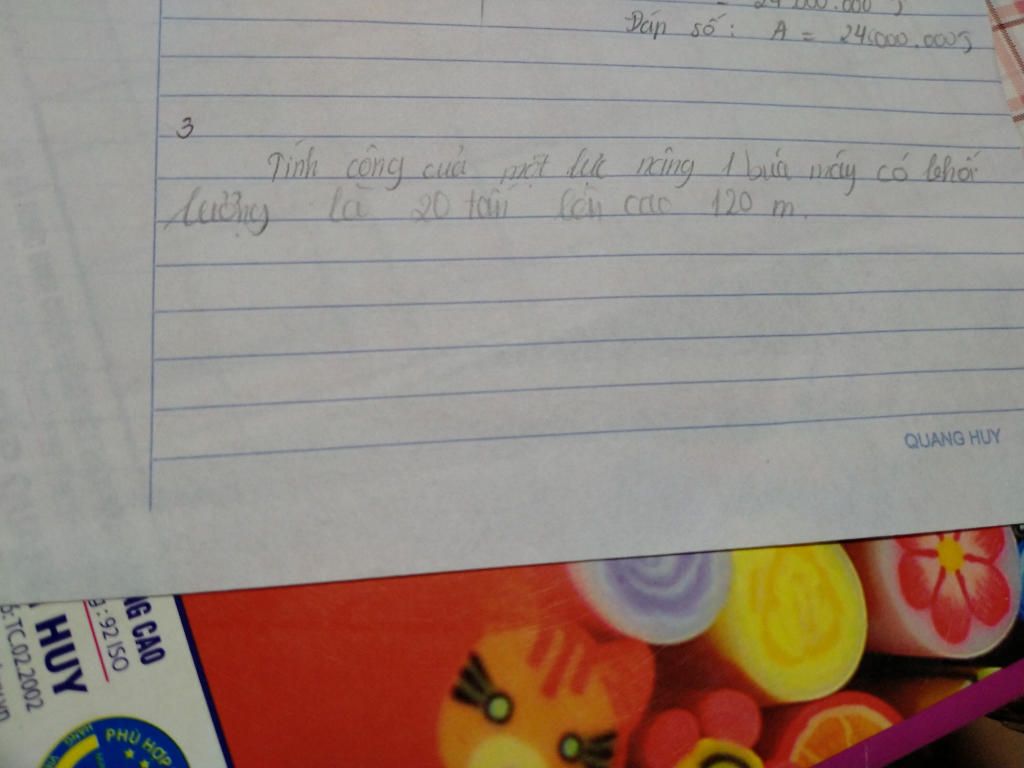 = 24.000.000 J
Đáp số: A = 24.000.000J
3
Tính công của một lực nâng 1 búa máy có khối
lượng là 20 tấn lên cao 120 m.
QUANG HUY
NG CAO
g: 92 ISO
HUY
ố:TC.02.2002
PHÙ HỢP
HÀNG